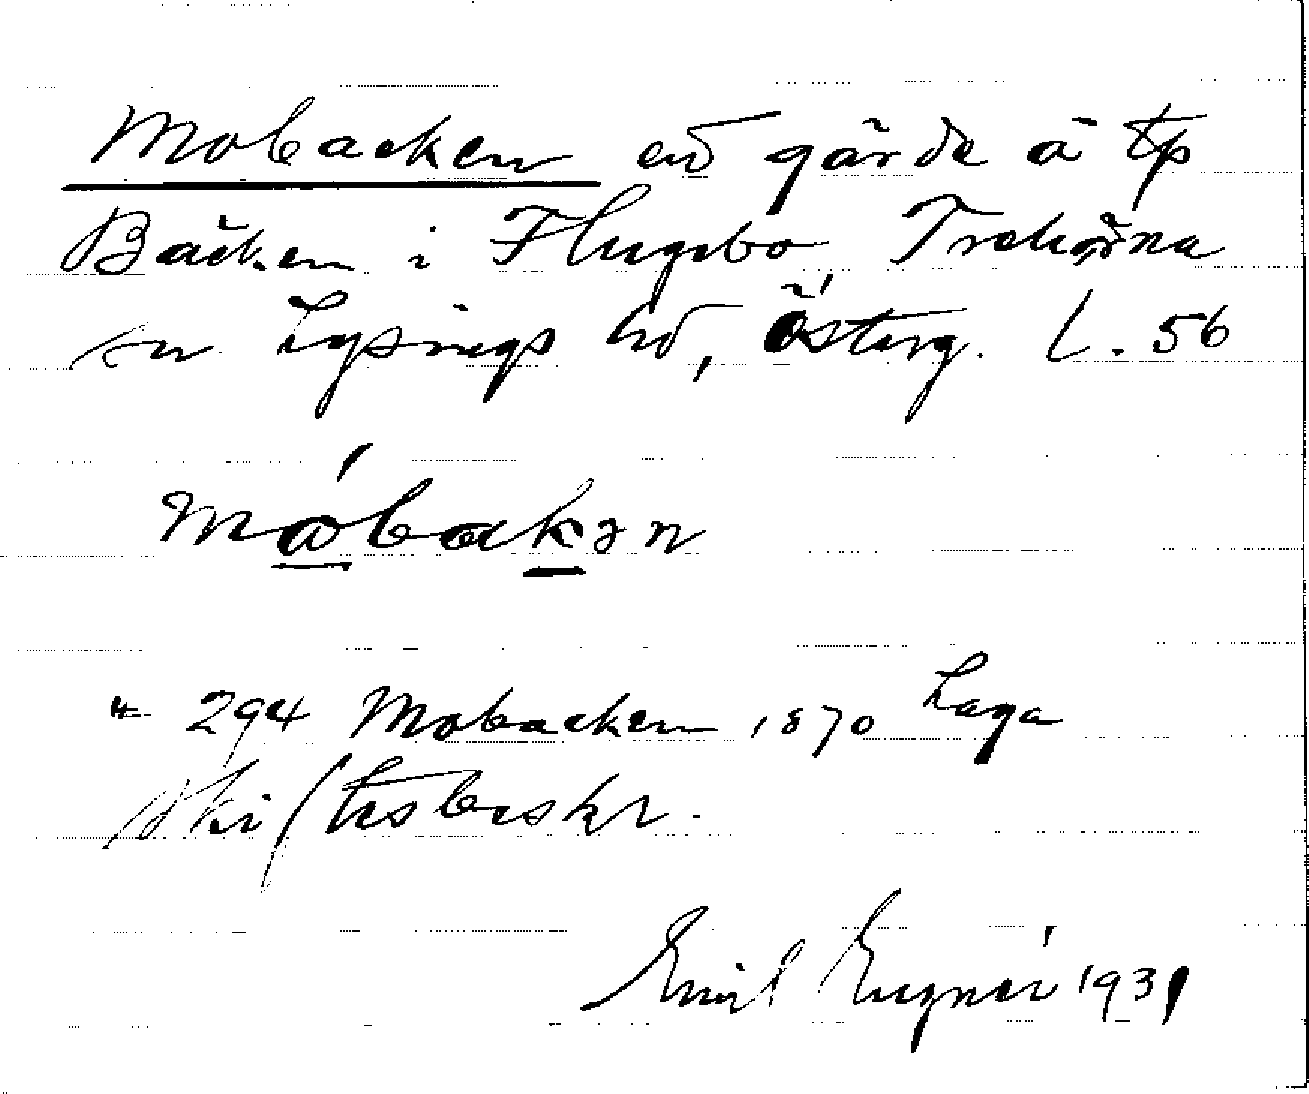 Mobacken ett gärde å tp
Bäcken i Flugebo, Trehörna
sn Lysings hd, Österg. L. 56
Mo̲bak̲ən
" 294 Mobacken 1870 Laga
skiftesbeskr.
Emil Eugnér 1931